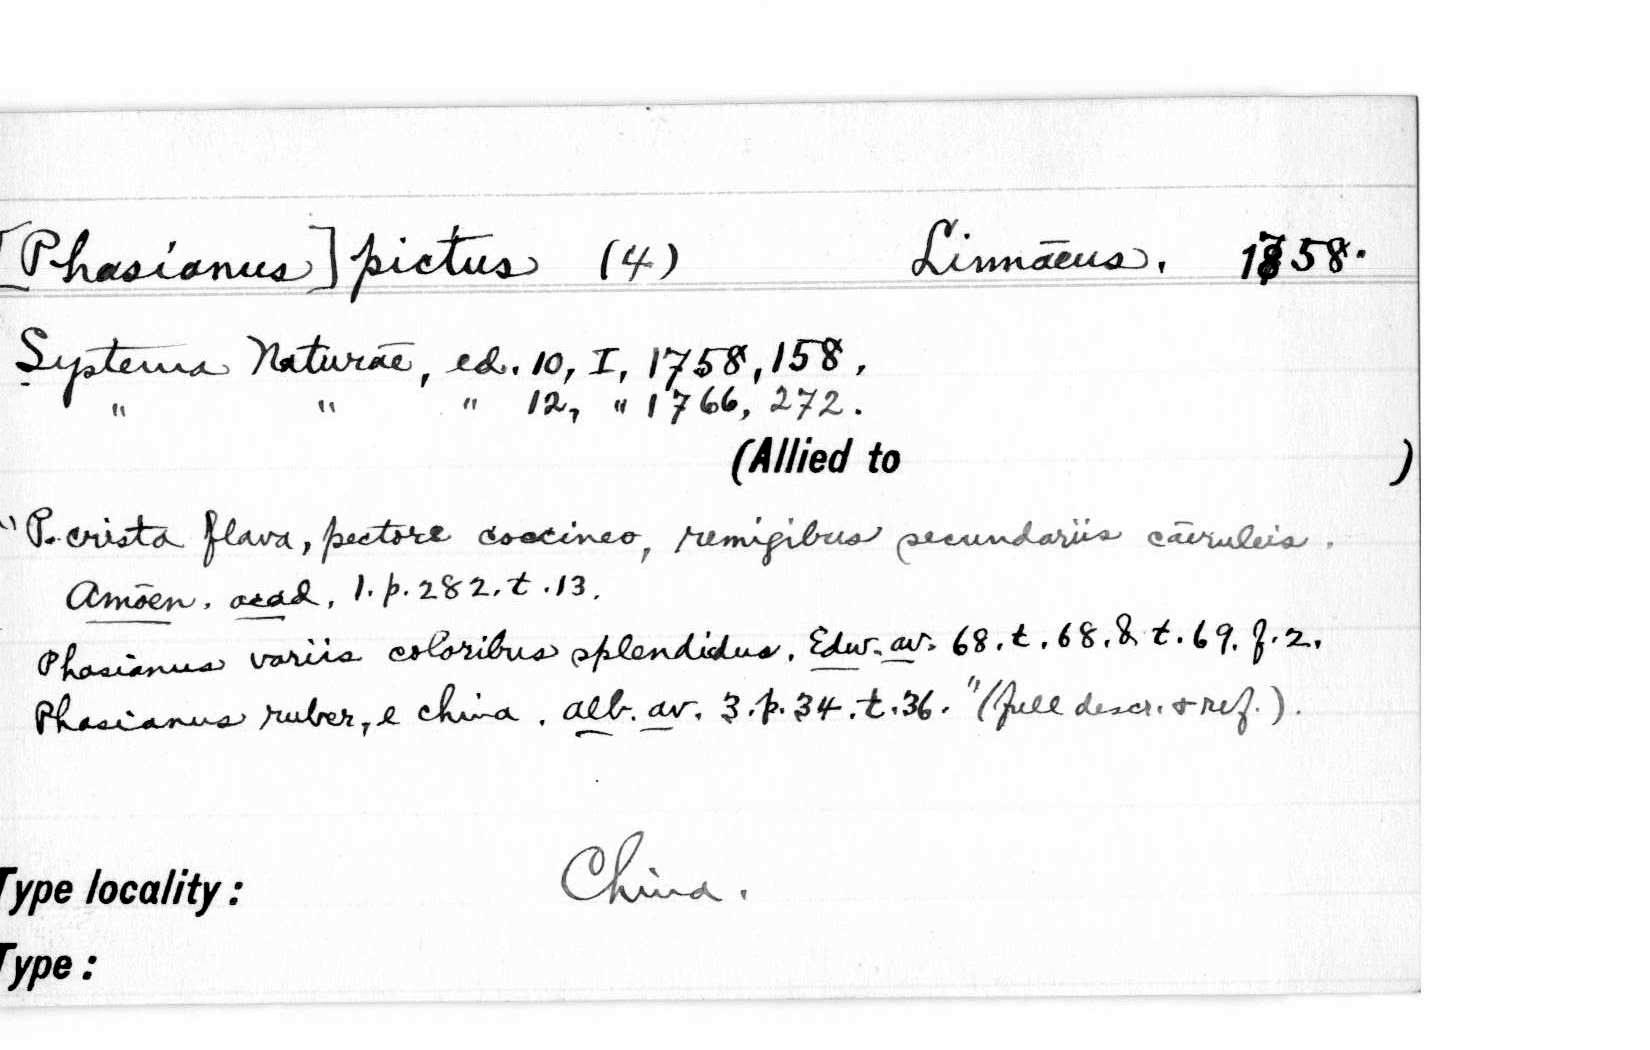 [Phasianus] pictus (4) Linnāeus. 1758.
Systema Naturāe, ed. 10, I, 1758, 158,
" " " 12, " 1766, 272.
(Allied to )
"P. crista flava, pectore coccineo, remigibus secundariis cāeruleis.
Amōen. acad. 1. p. 282. t. 13.
Phasianus variis coloribus splendidus. Edw. av. 68. t. 68. & t. 69. f. 2.
Phasianus ruber, e china. alb. av. 3. p. 34. t. 36." (full descr. & ref.).
Type locality: China.
Type: